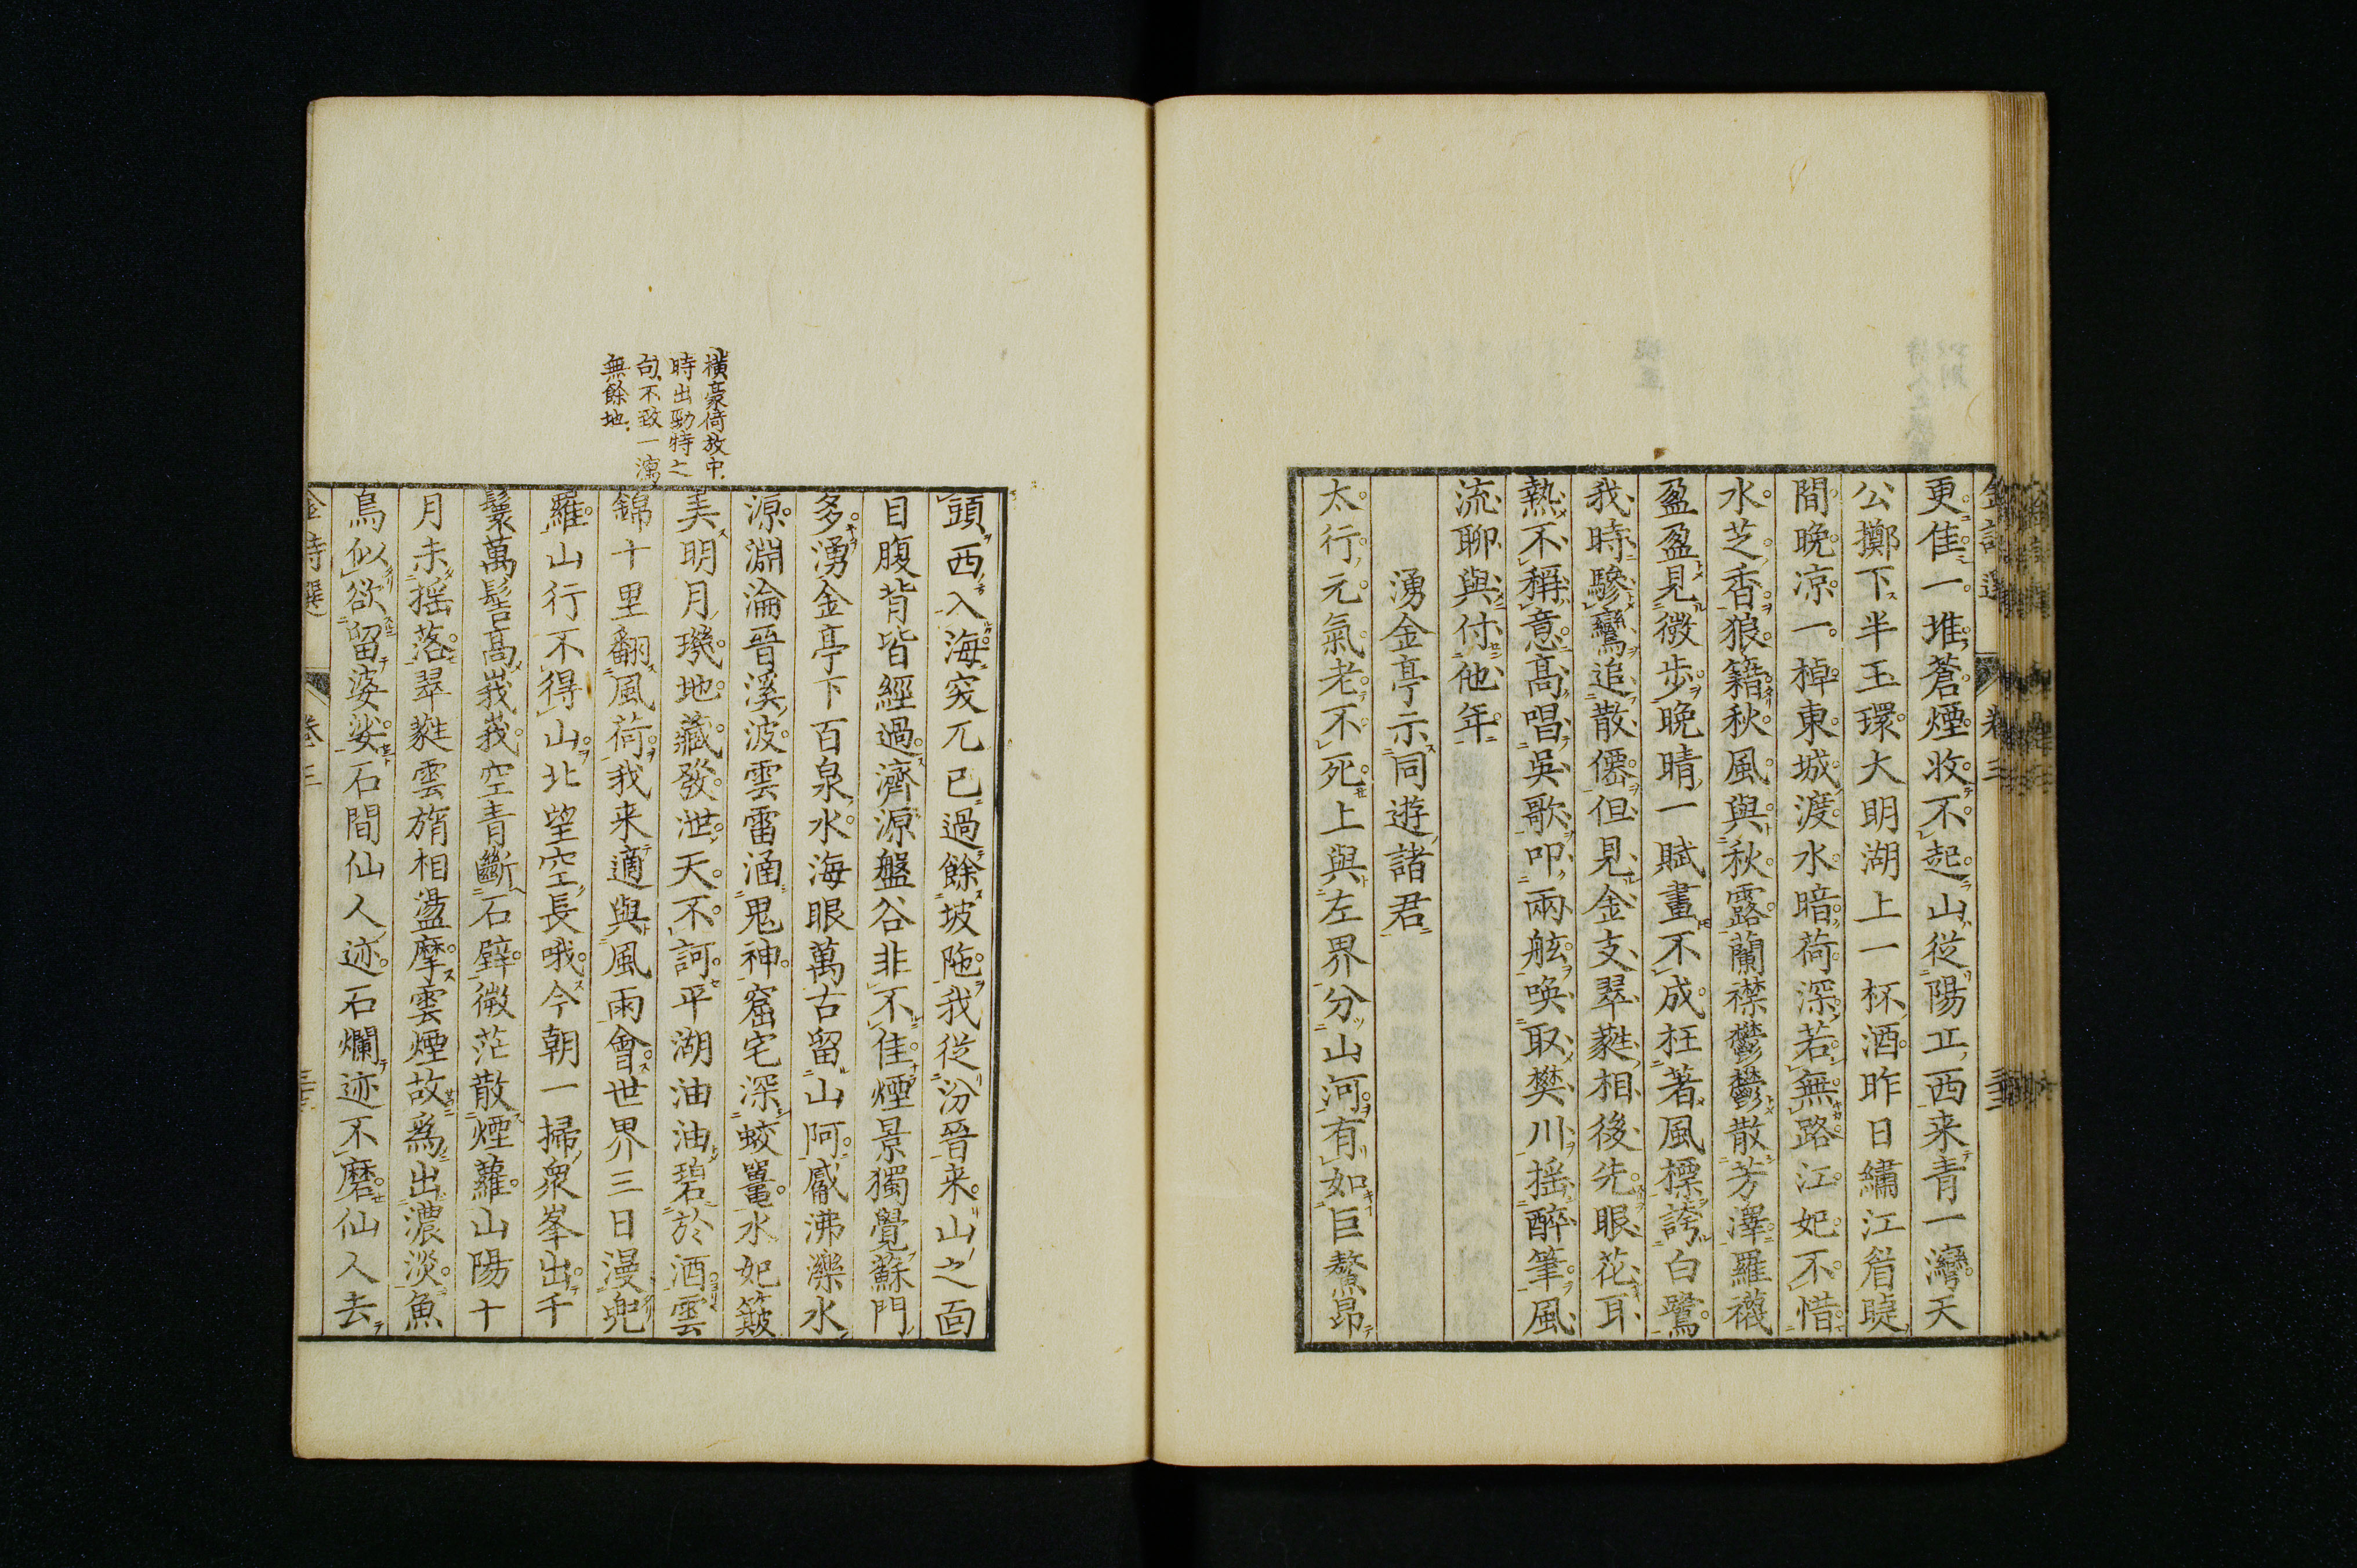 更佳一堆蒼煙收不起山從陽丘西来青一灣天
公擲下半玉環大明湖上一杯酒昨日繡江眉睫
間晩凉一棹東城渡水暗荷深若無路江妃不惜
水芝香狼籍秋風與秋露蘭襟鬱鬱散芳澤羅襪
盈盈見微步晩晴一賦畫不成枉著風標誇白鷺
我時驂鸞追散僊但見金支翠蕤相後先眼花耳
熱不稱意高唱吳歌叩兩舷喚取樊川搖醉筆風
流聊與付他年
湧金亭示同遊諸君
太行元氣老不死上與左界分山河有如巨鰲昂
頭西入海突兀已過餘坡陁我從汾晉来山之面
目腹背皆經過濟源盤谷非不佳煙景獨覺蘇門
多湧金亭下百泉水海眼萬古留山阿觱沸濼水
源淵淪晉溪波雲雷涵鬼神窟宅深蛟鼉水妃簸
美明月璣地藏發泄天不訶平湖油油碧於酒雲
錦十里翻風荷我来適與風雨會世界三日漫兜
羅山行不得山北望空長哦今朝一掃衆峯出千
鬟萬髻高峩峩空青斷石壁微茫散煙蘿山陽十
月未搖落翠蕤雲旓相盪摩雲煙故爲出濃淡魚
鳥似欲留婆娑石間仙人迹石爛迹不磨仙人去
橫豪倚放中
時出勁特之
句不致一瀉
無餘地
金詩選 卷三